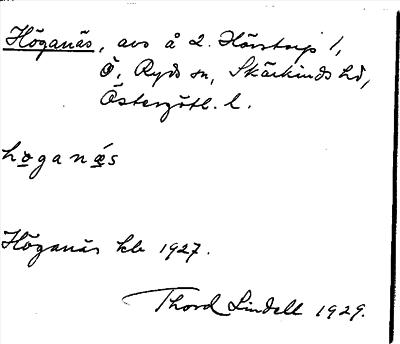 Höganäs, avs å 2. Hårstorp 1,
Ö. Ryds sn, Skärkinds hd,
Östergötl. l.
høganæ̀s
Höganäs kb 1927.
Thord Lindell 1929.